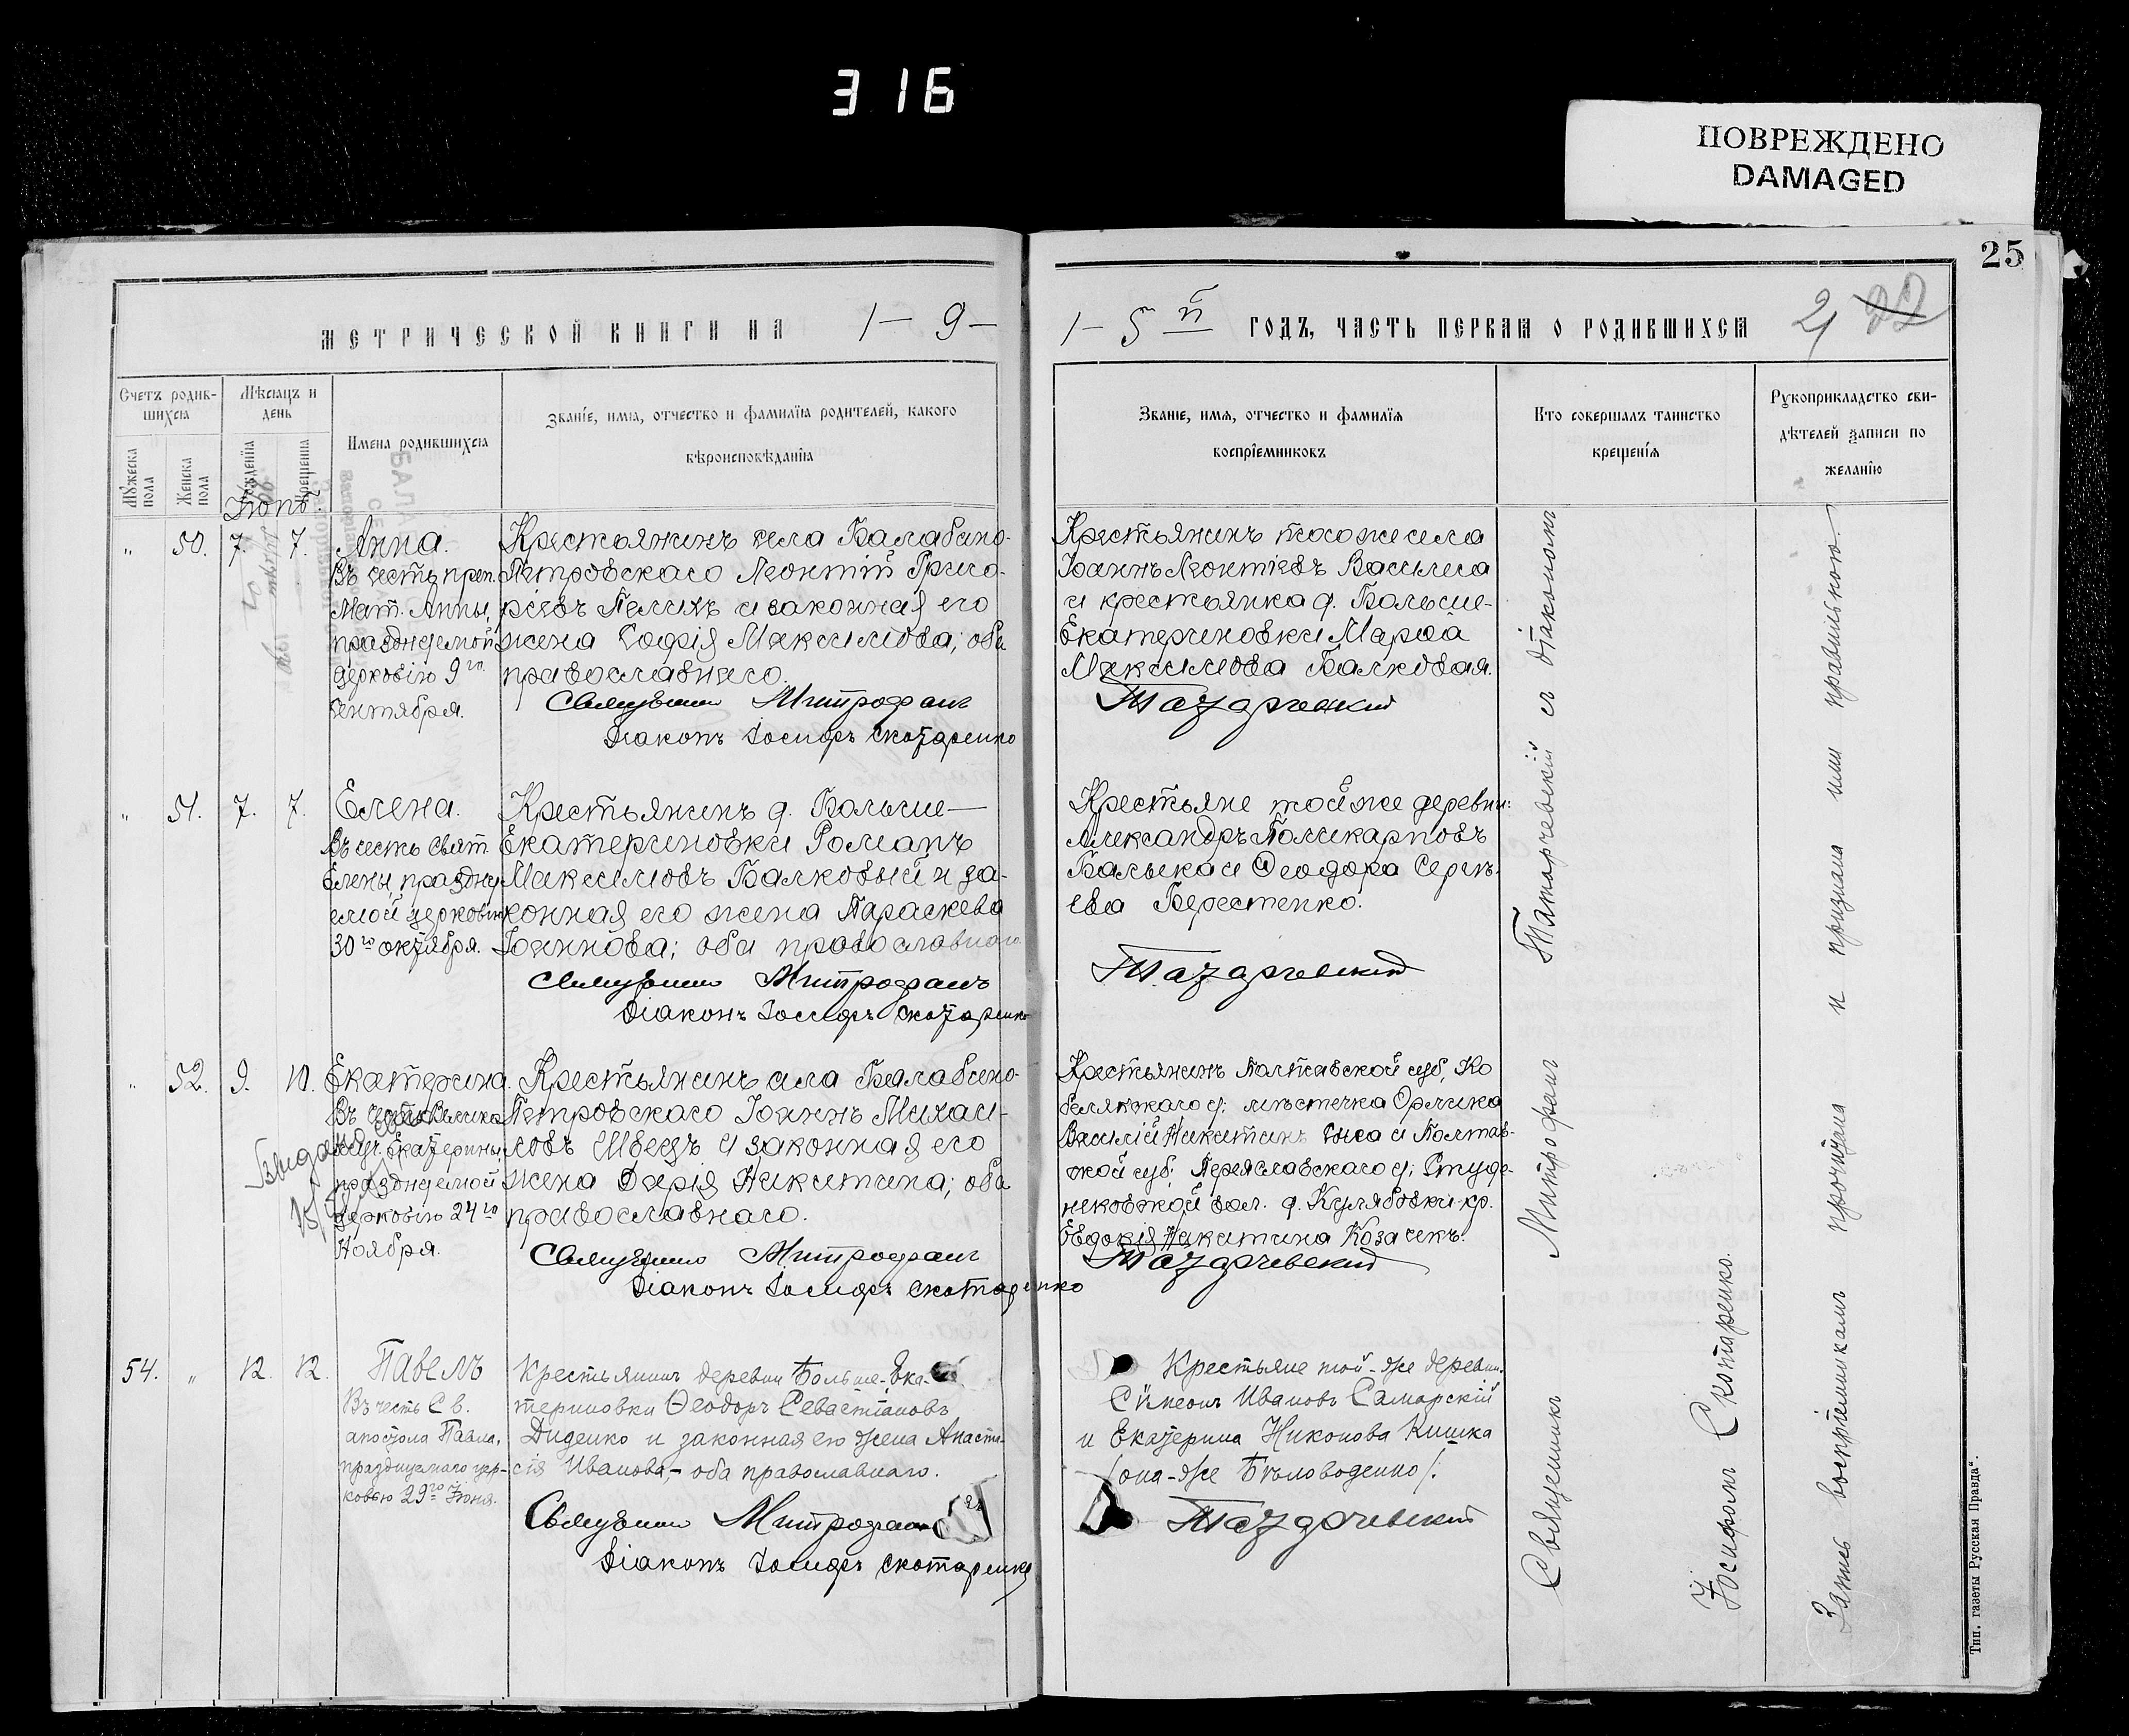 316
ПОВРЕЖДЕНО
DAMAGED
25
МЕТРИЧЕСКОЙ КНИГИ НА 1 – 9 –
1 – 5 й ГОДЪ, ЧАСТЬ ПЕРВАЯ О РОДИВШИХСЯ
21 22
Счетъ родив-
шихся
Мѣсяцъ и
день
Мꙋжеска
пола
Женска
пола
рожденія
крещенія
Имена родившихся
Званіе, имя, отчество и фамилія родителей, какого
вѣроисповѣданія
Званіе, имя, отчество и фамилія
воспріемниковъ
Кто совершалъ таинство
крещенія
Рꙋкоприкладство сви-
дѣтелей записи по
желанію
„ 50. 7. 7.
Анна.
Въ честь преп.
Мат. Анны,
празднуемой
церковію 9го
сентября.
Крестьянинъ села Балабино-
Петровскаго Леонтій Григо-
ріевъ Пелихъ и законная его
жена Софія Максимова; оба
православнаго.
Священникъ Митрофанъ
Діаконъ Іосифъ Скотаренко
Крестьянинъ того же села
Іоаннъ Леонтіевъ Василига
и крестьянка д. Больше-
Екатериновки Марѳа
Максимова Балковая.
Татарчевский
„ 51. 7. 7.
Елена.
Въ честь свят.
Елены, праздну-
емой церковію
30го октября.
Крестьянинъ д. Больше-
Екатериновки Романъ
Максимовъ Балковый и за-
конная его жена Параскева
Іоаннова; оба православнаго
Священникъ Митрофанъ
Діаконъ Іосифъ Скотаренко
Крестьяне той же деревни:
Александръ Поликарповъ
Балыка и Ѳеодора Сергѣ-
ева Берестенко.
Татарчевский
„ 52. 9. 10.
Екатерина.
Въ честь Велико
муч. Екатерины,
празднуемой
церковію 24го
Ноября.
Крестьянинъ села Балабино-
Петровскаго Іоаннъ Михаи-
ловъ Швецъ и законная его
жена Дарія Никитина; оба
православнаго.
Священникъ Митрофанъ
Діаконъ Іосифъ Скотаренко
Крестьянинъ Полтавской губ, Ко
белякскаго у; мѣстечка Орлика
Василій Никитинъ и Полтав-
ской губ; Переяславскаго у; Студе-
никовской вол. д. Кулябовки кр.
Евдокія Никитина Козачекъ.
Татарчевский
54. „ 12. 12.
Павелъ
Въ честь Св.
апостола Павла,
празднуемаго цер-
ковью 29го Іюня.
Крестьянинъ деревни Больше-Ека-
териновки Ѳеодоръ Севастіановъ
Диденко и законная его жена Анаста-
сія Иванова, – оба православнаго.
Священникъ Митрофанъ
Діаконъ Іосифъ Скотаренко
Крестьяне той-же деревни.
Симеонъ Ивановъ Самарскій
и Екатерина Никонова Кишка
/она-же Бѣловоденко/.
Татарчевский
Священникъ Митрофанъ Татарчевскій съ діакономъ
Іосифомъ Скотаренко.
Запись воспріемникамъ прочитана и признана ими правильною.
Тип. газеты Русская Правда“.